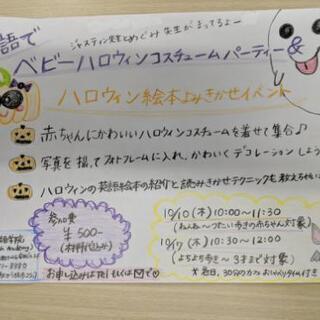 語で
ジャスティン先生とめぐみ先生がまってるよー
ベビーハロウィンコスチュームパーティー&
ハロウィン絵本よみきかせイベント
赤ちゃんにかわいいハロウィンコスチュームを着せて集合♪
写真を撮ってフォトフレームに入れ、かわいくデコレーションしよう
ハロウィンの英語絵本の紹介と読みきかせテクニックを教えちゃい
参加費
¥500-
(材料代込み)
10/10(木)10:00〜11:30
(ねんね〜つたい歩きの赤ちゃん対象)
10/17(木)10:30〜12:00
(よちよち歩き〜3才まで対象)
※各日、30分のカフェおしゃべりタイム付き
お申し込みはTel もしくは✉で